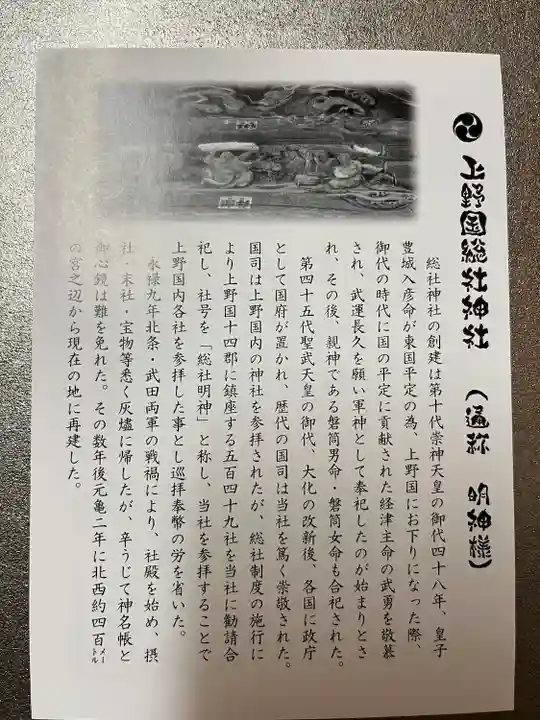 上野国総社神社　（通称　明神様）
総社神社の創建は第十代崇神天皇の御代四十八年、皇子
豊城入彦命が東国平定の為、上野国にお下りになった際、
御代の時代に国の平定に貢献された経津主命の武勇を敬慕
され、武運長久を願い軍神として奉祀したのが始まりとさ
れ、その後、親神である磐筒男命・磐筒女命も合祀された。
第四十五代聖武天皇の御代、大化の改新後、各国に政庁
として国府が置かれ、歴代の国司は当社を篤く崇敬された。
国司は上野国内の神社を参拝されたが、総社制度の施行に
より上野国十四郡に鎮座する五百四十九社を当社に勧請合
祀し、社号を「総社明神」と称し、当社を参拝することで
上野国内各社を参拝した事とし巡拝奉幣の労を省いた。
永禄九年北条・武田両軍の戦禍により、社殿を始め、摂
社・末社・宝物等悉く灰燼に帰したが、辛うじて神名帳と
御心鏡は難を免れた。その数年後元亀二年に北西約四百メートル
の宮之辺から現在の地に再建した。